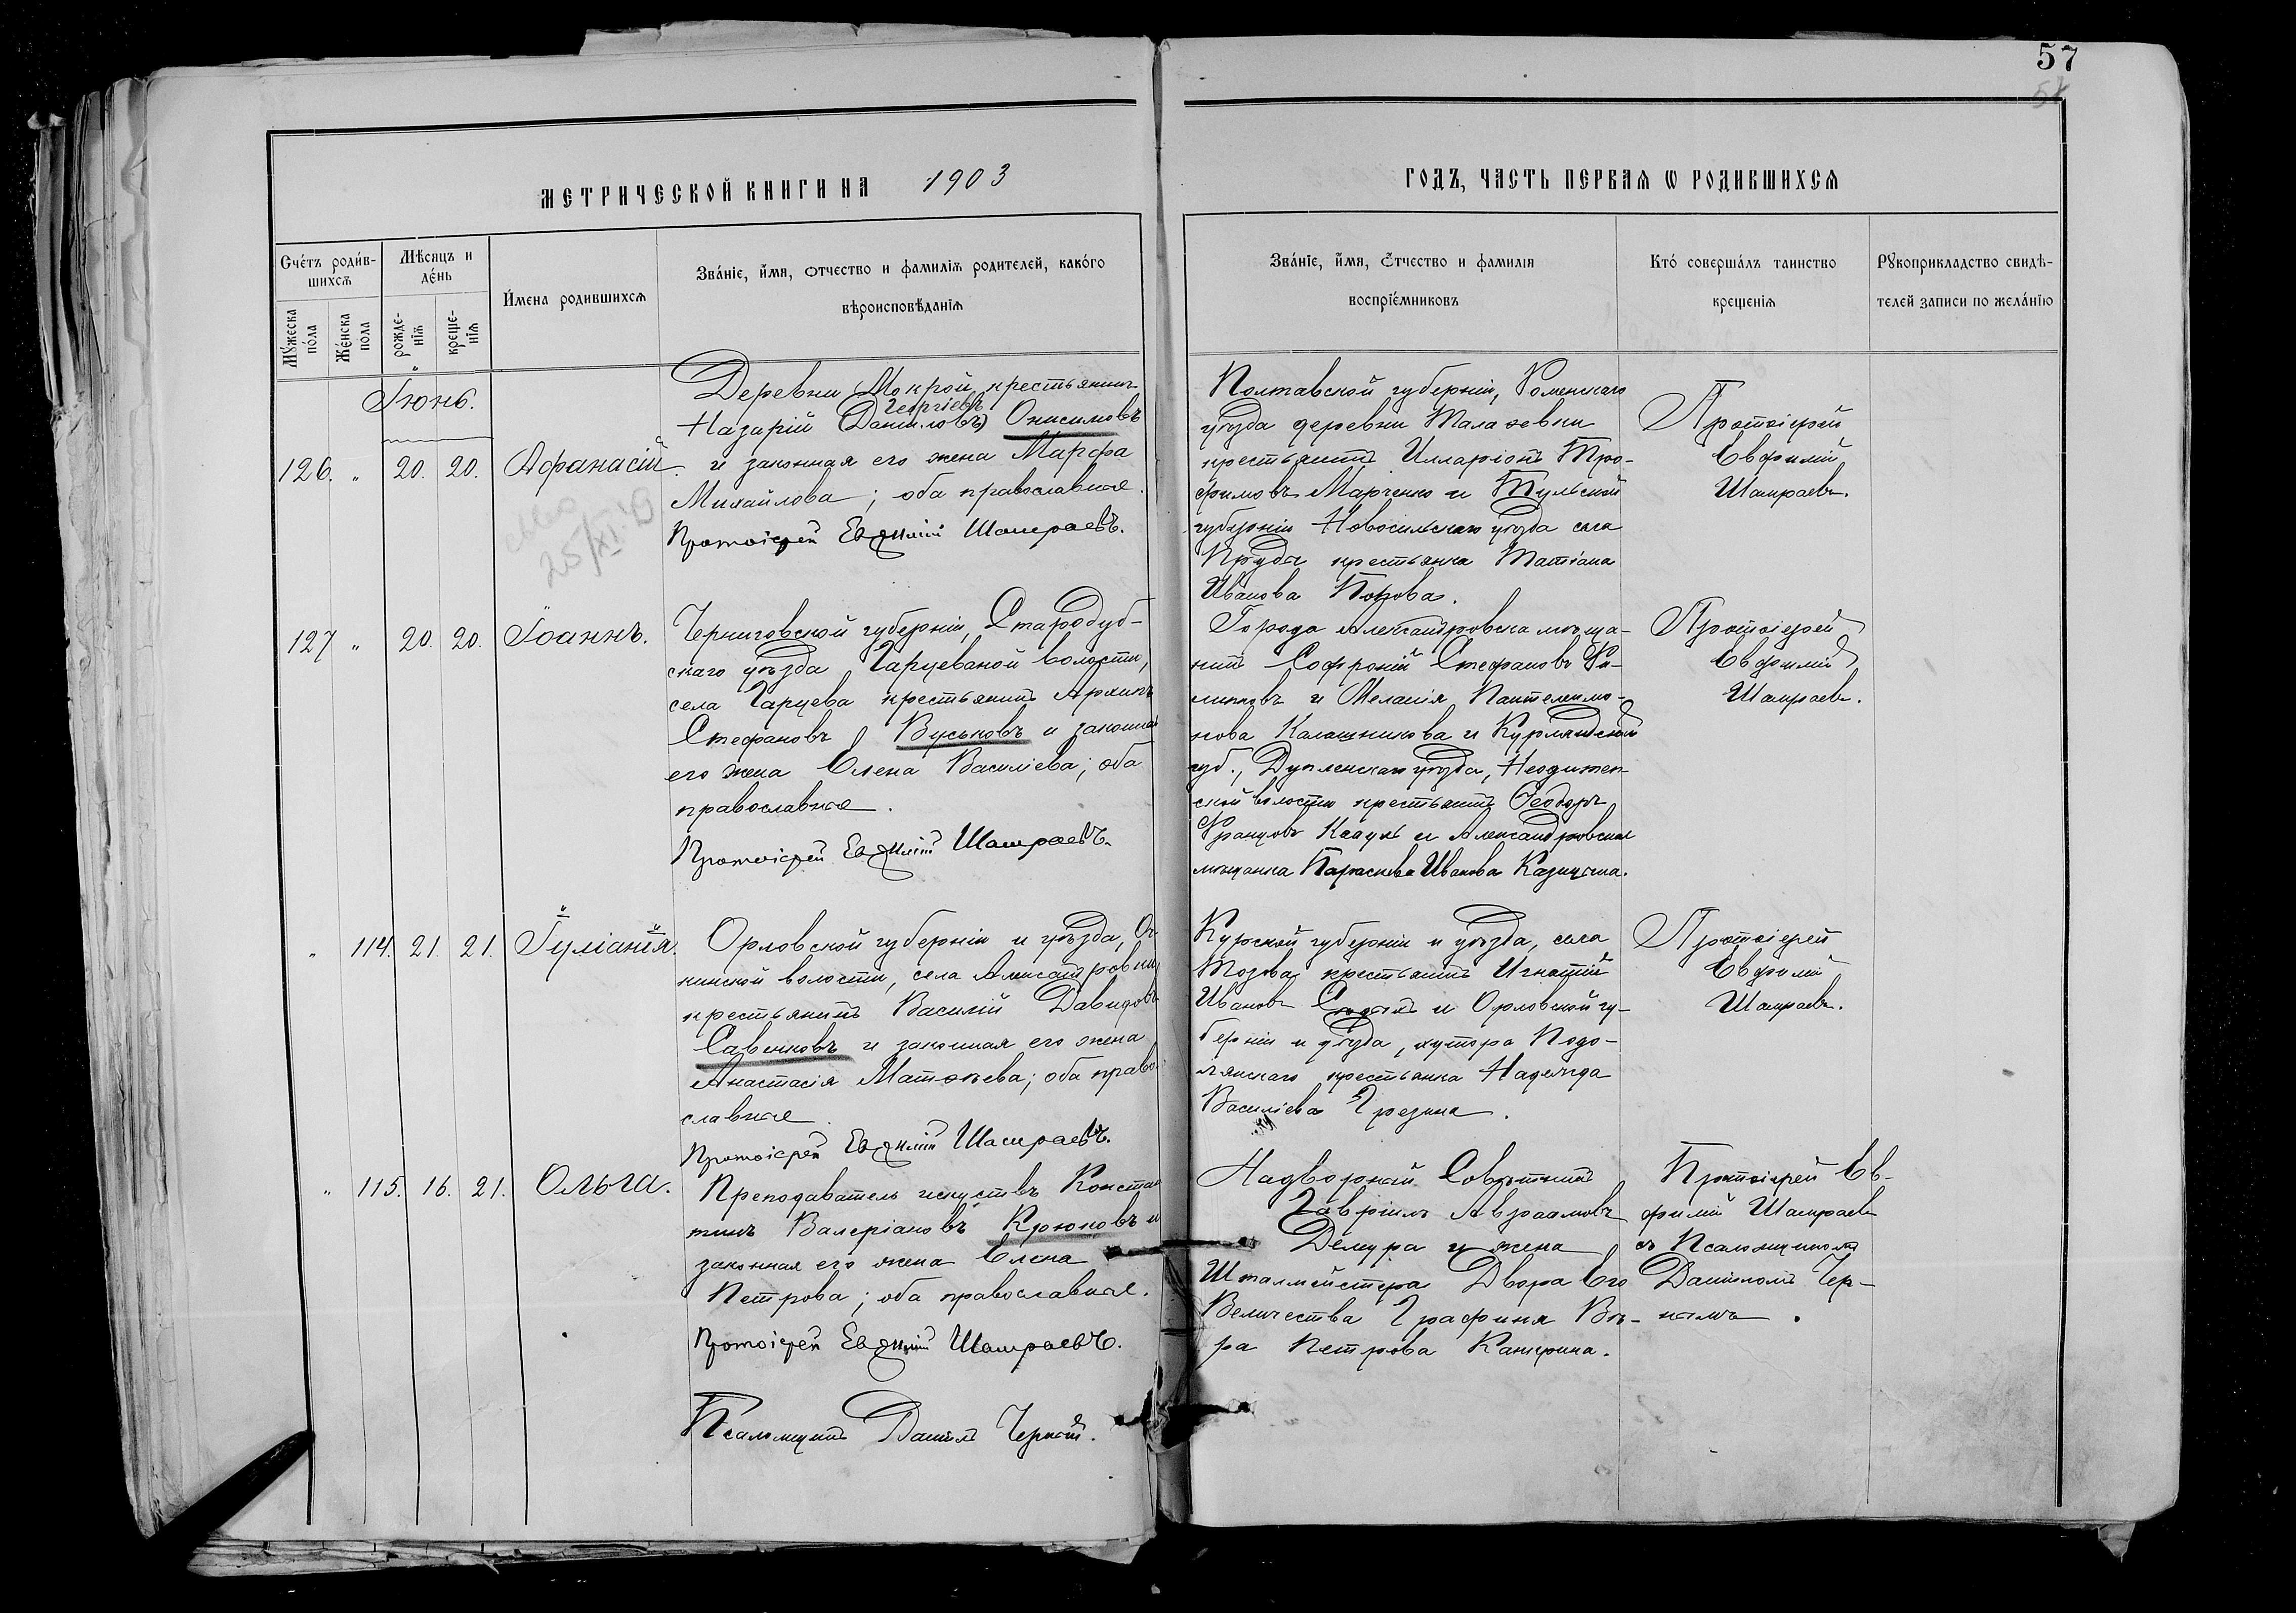 57
МЕТРИЧЕСКОЙ КНИГИ НА 1903
ГОДЪ, ЧАСТЬ ПЕРВАЯ Ѡ РОДИВШИХСЯ
Счетъ родив-
шихся
Мѣсяцъ и
день
Мужеска пола
Женска пола
рожде-
нія
креще-
нія
Имена родившихся
Званіе, имя, отчество и фамилія родителей, какого
вѣроисповѣданія
Званіе, имя, отчество и фамилія
воспріемниковъ
Кто совершалъ таинство
крещенія
Рукоприкладство свидѣ-
телей записи по желанію
Іюнь.
126. " 20. 20. Афанасій.
25/XI
Деревни Мокрой, крестьянинъ
Георгіевъ
Назарій (Даниловъ) Онисимовъ
и законная его жена Марфа
Михайлова; оба православные.
Протоіерей Евфимій Шамраевъ.
Полтавской губерніи, Роменскаго
уѣзда деревни Талаевки
крестьянинъ Илларіонъ Тро-
фимовъ Марченко и Тульской
губерніи Новосильскаго уѣзда села
Пруды крестьянка Татіана
Иванова Попова.
Протоіерей
Евфимій
Шамраевъ.
127 " 20. 20. Іоаннъ.
Черниговской губерніи, Стародуб-
скаго уѣзда, Гарцевской волости,
села Гарцева крестьянинъ Архипъ
Стефановъ Вуськовъ и законная
его жена Елена Василіева; оба
православные.
Протоіерей Евфимій Шамраевъ.
Города Александровска мѣща-
нинъ Софроній Стефановъ
и Меланія Пантелеимо-
нова Калашникова и Курляндской
губ., уѣзда,
ской волости крестьянинъ Ѳеодоръ
Францовъ и Александровская
мѣщанка Параскева Иванова
Протоіерей
Евфимій
Шамраевъ.
" 114. 21. 21. Іуліанія.
Орловской губерніи и уѣзда,
волости, села Александровки
крестьянинъ Василій Давидовъ
Савенковъ и законная его жена
Анастасія Матѳеева; оба право-
славные.
Протоіерей Евфимій Шамраевъ.
Курской губерніи и уѣзда, села
крестьянинъ Игнатій
Ивановъ и Орловской гу-
берніи и уѣзда, хутора Подо-
лянскаго крестьянка Надежда
Василіева
Протоіерей
Евфимій
Шамраевъ.
" 115. 16. 21. Ольга.
Преподаватель искуствъ Констан
тинъ Валеріановъ Крюковъ и
законная его жена Елена
Петрова; оба православные.
Протоіерей Евфимій Шамраевъ.
Псаломщикъ Даніилъ Черный.
Надворный Совѣтникъ
Гавріилъ Авраамовъ
Демура и жена
Шталмейстера Двора Его
Величества Графиня Вѣ-
ра Петрова Канкрина.
Протоіерей Ев-
фимій Шамраевъ
съ Псаломщикомъ
Даніиломъ Чер-
нымъ.